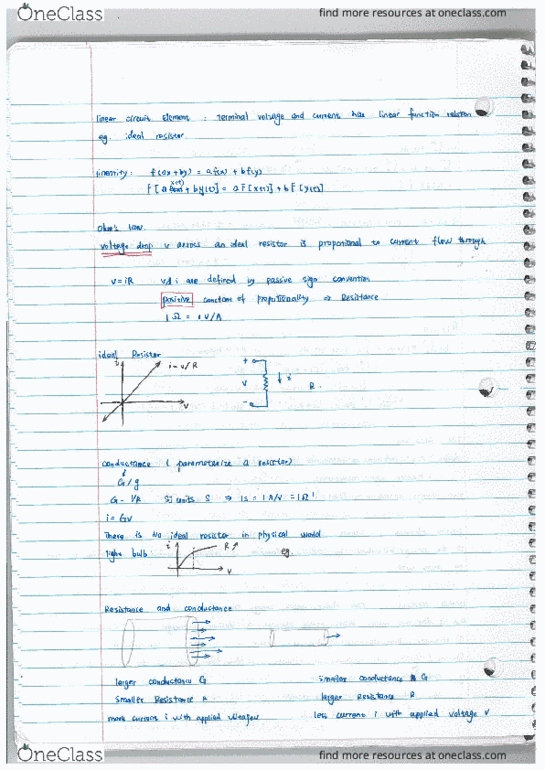 OneClass find more resources at oneclass.com
linear circuit element : terminal voltage and current has linear function relation
eg. ideal resistor
linearity: f(ax+by) = af(x) + bf(y)
x(t)
F[a + by(t)] = aF[x(t)] + bF[y(t)]
ohm's law.
voltage drop v across an ideal resistor is proportional to current flow through
v=iR v,i are defined by passive sign convention
positive constant of proportionality ⇒ Resistance
1Ω = 1V/A
ideal Resistor
i i=v/R
v
+
v i R.
-
conductance ( parameterize a resistor)
G/g
G = 1/R SI units S ⇒ 1S = 1A/V = 1Ω⁻¹
i=Gv
There is No ideal resistor in physical world
light bulb: i R↗ eg.
v
Resistance and conductance
larger conductance G smaller conductance G
smaller Resistance R larger Resistance R
more current i with applied voltage v less current i with applied voltage v
OneClass find more resources at oneclass.com